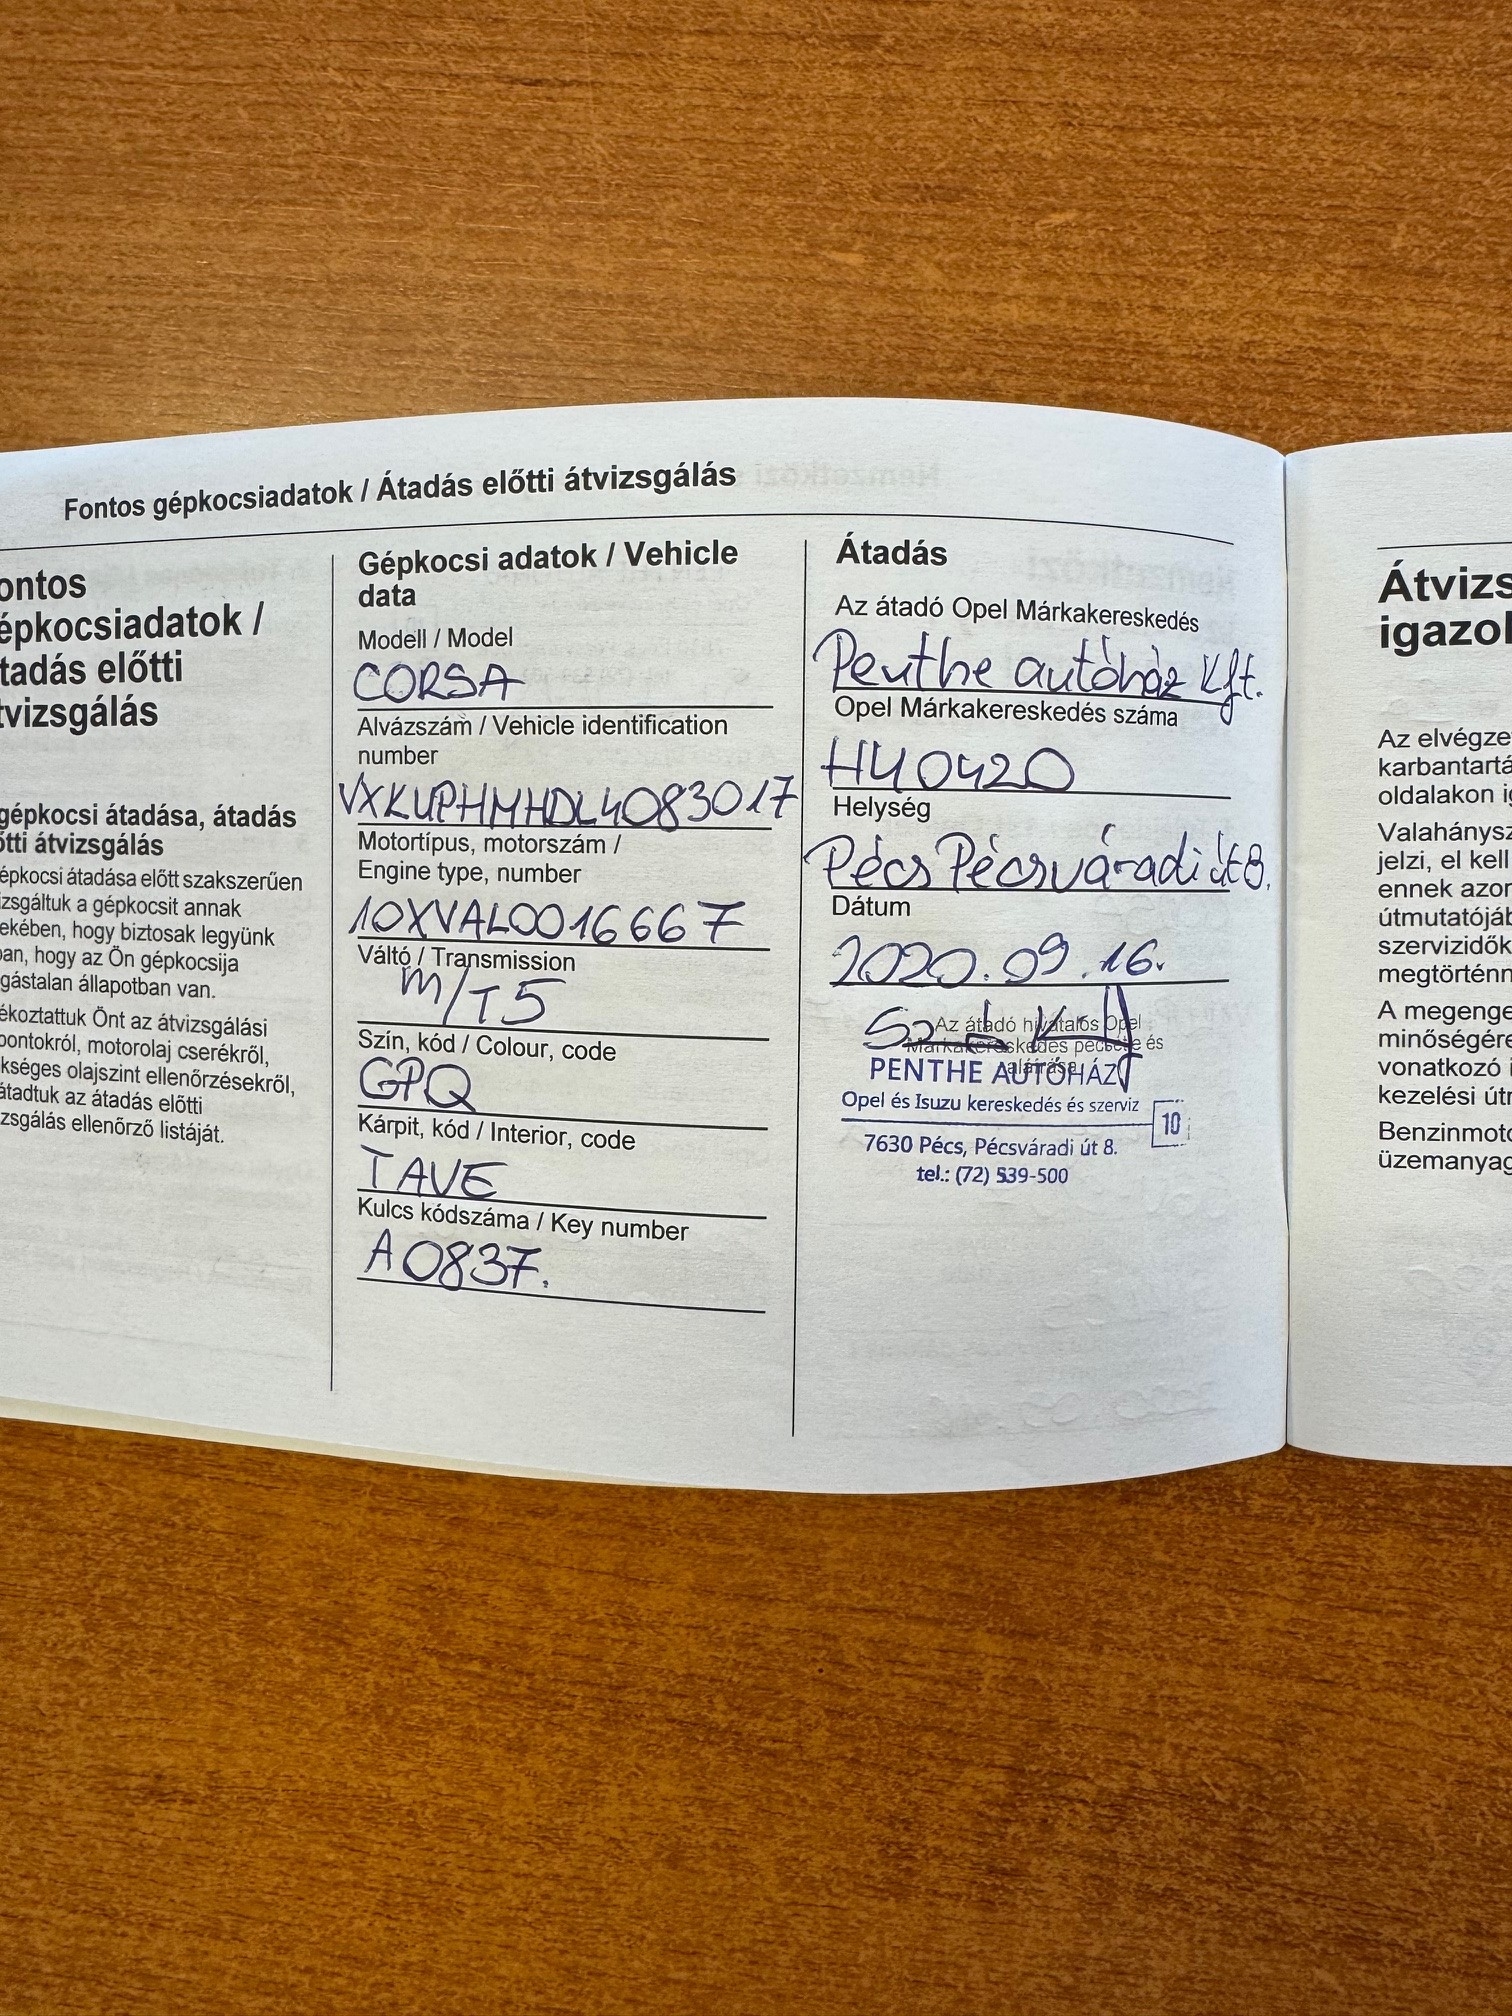 Fontos gépkocsiadatok / Átadás előtti átvizsgálás
ontos
épkocsiadatok /
tadás előtti
tvizsgálás
gépkocsi átadása, átadás
őtti átvizsgálás
épkocsi átadása előtt szakszerűen
izsgáltuk a gépkocsit annak
ekében, hogy biztosak legyünk
ban, hogy az Ön gépkocsija
gástalan állapotban van.
ékoztattuk Önt az átvizsgálási
pontokról, motorolaj cserékről,
kséges olajszint ellenőrzésekről,
átadtuk az átadás előtti
zsgálás ellenőrző listáját.
Gépkocsi adatok / Vehicle
data
Modell / Model
CORSA
Alvázszám / Vehicle identification
number
VXKUPHMHDL4083017
Motortípus, motorszám /
Engine type, number
10XVAL0016667
Váltó / Transmission
M/T5
Szín, kód / Colour, code
GPQ
Kárpit, kód / Interior, code
TAVE
Kulcs kódszáma / Key number
A0837.
Átadás
Az átadó Opel Márkakereskedés
Penthe autóház Kft.
Opel Márkakereskedés száma
HU0420
Helység
Pécs Pécsváradi út 8.
Dátum
2020.09.16.
Az átadó hivatalos Opel
Márkakereskedés pecsétje és
aláírása
PENTHE AUTÓHÁZ
Opel és Isuzu kereskedés és szerviz
10
7630 Pécs, Pécsváradi út 8.
tel.: (72) 539-500
Átvizs
igazol
Az elvégze
karbantartá
oldalakon ig
Valahánysz
jelzi, el kell
ennek azon
útmutatójáb
szervizidők
megtörténn
A megenge
minőségére
vonatkozó i
kezelési útm
Benzinmoto
üzemanyag